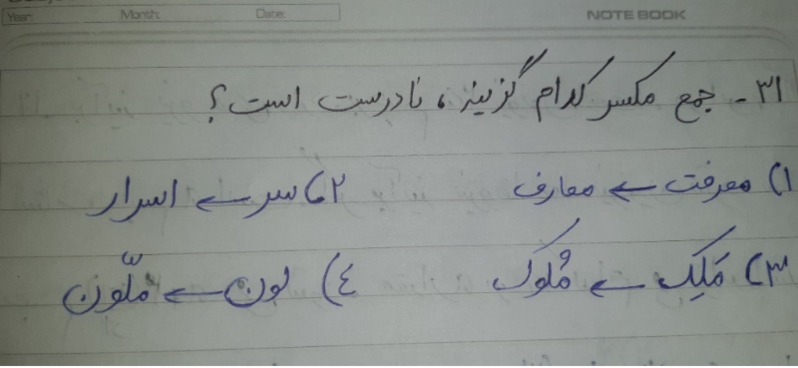 Year: Month: Date: NOTE BOOK
۳۱- جمع مکسر کدام گزینه، نادرست است؟
۱) معرفت ← معارف ۲) سر ← اسرار
۳) مَلِک ← مُلوک ٤) لون ← ملّون